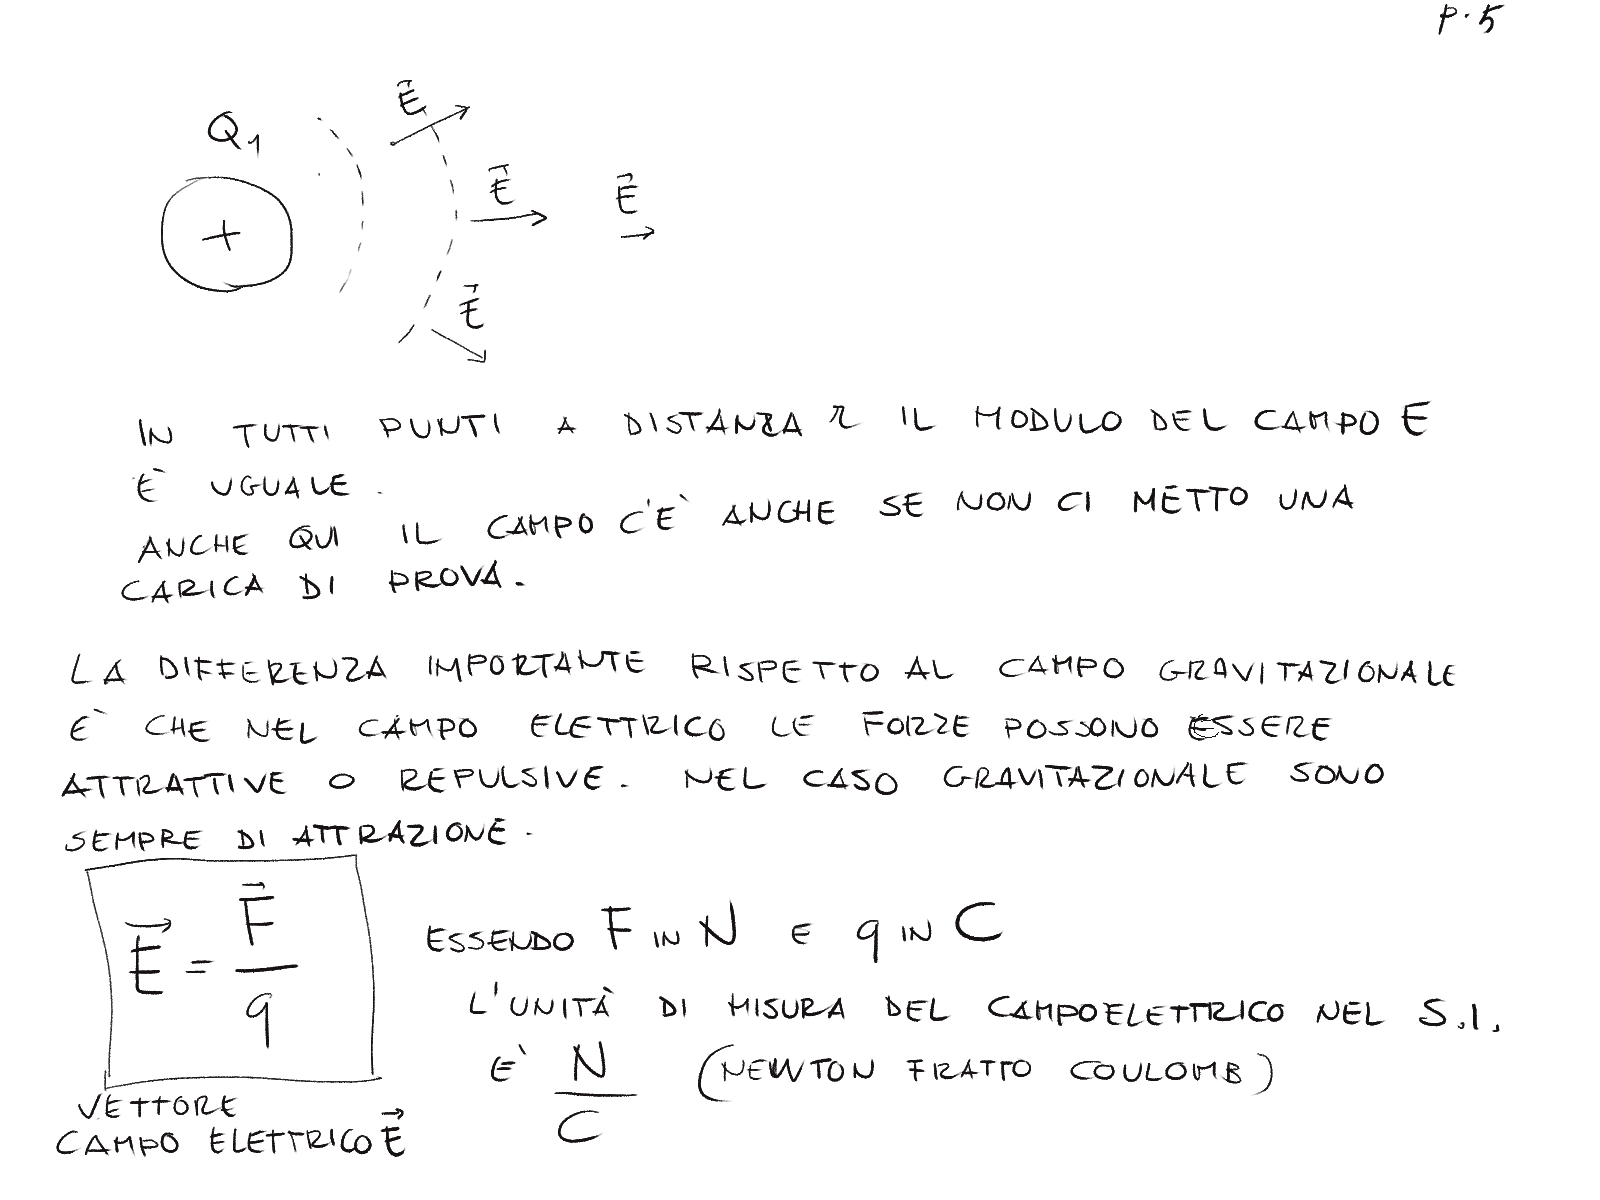 p.5
Q1
E⃗
E⃗
E⃗
E⃗
+
IN TUTTI PUNTI A DISTANZA r IL MODULO DEL CAMPO E
È UGUALE.
ANCHE QUI IL CAMPO C'E` ANCHE SE NON CI METTO UNA
CARICA DI PROVA.
LA DIFFERENZA IMPORTANTE RISPETTO AL CAMPO GRAVITAZIONALE
E` CHE NEL CAMPO ELETTRICO LE FORZE POSSONO ESSERE
ATTRATTIVE O REPULSIVE. NEL CASO GRAVITAZIONALE SONO
SEMPRE DI ATTRAZIONE.
E⃗ = F⃗/q
ESSENDO F IN N E q IN C
L'UNITÀ DI MISURA DEL CAMPO ELETTRICO NEL S.I.
E` N/C (NEWTON FRATTO COULOMB)
VETTORE
CAMPO ELETTRICO E⃗